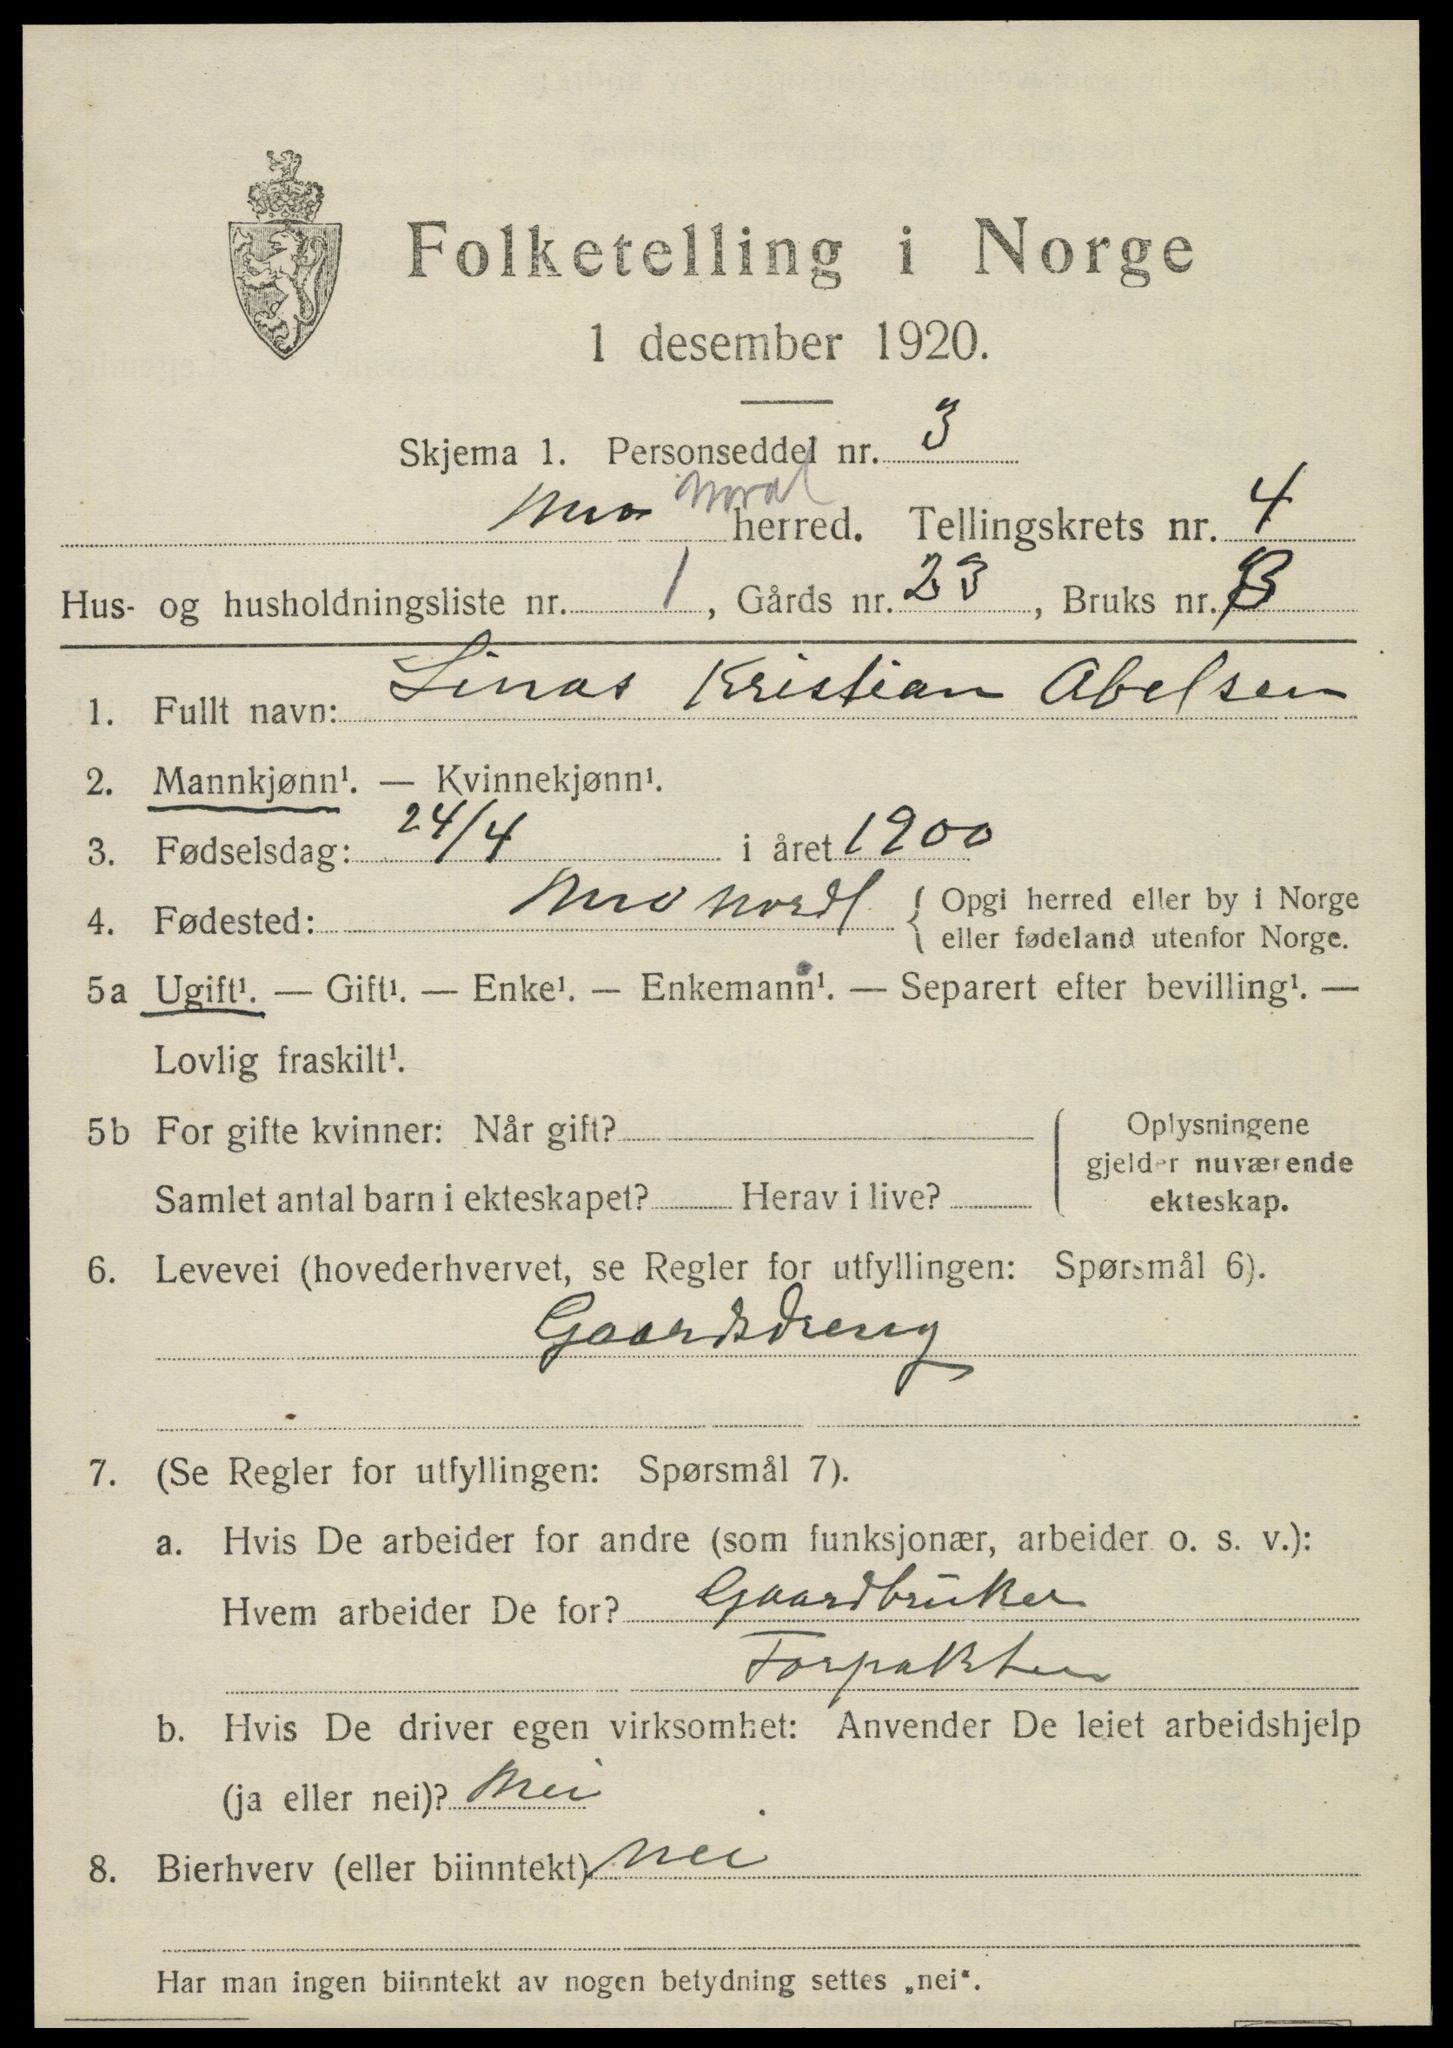 Folketelling i Norge
1 desember 1920.
Skjema 1. Personseddel nr. 3
Mo Nord herred. Tellingskrets nr. 4
Hus- og husholdningsliste nr. 1, Gårds nr. 23, Bruks nr.
1. Fullt navn: Linas Kristian Abelsen
2. Mannkjønn¹. — Kvinnekjønn¹.
3. Fødselsdag: 24/4 i året 1900
4. Fødested: Mo Nordl. { Opgi herred eller by i Norge
eller fødeland utenfor Norge.
5a Ugift¹. — Gift¹. — Enke¹. — Enkemann¹. — Separert efter bevilling¹. —
Lovlig fraskilt¹.
5b For gifte kvinner: Når gift?
Samlet antal barn i ekteskapet? Herav i live?
Oplysningene
gjelder nuværende
ekteskap.
6. Levevei (hovederhvervet, se Regler for utfyllingen: Spørsmål 6).
Gaardsdreng
7. (Se Regler for utfyllingen: Spørsmål 7).
a. Hvis De arbeider for andre (som funksjonær, arbeider o. s. v.):
Hvem arbeider De for? Gaardbruker
Forpakter
b. Hvis De driver egen virksomhet: Anvender De leiet arbeidshjelp
(ja eller nei)? Nei
8. Bierhverv (eller biinntekt) nei
Har man ingen biinntekt av nogen betydning settes „nei“.